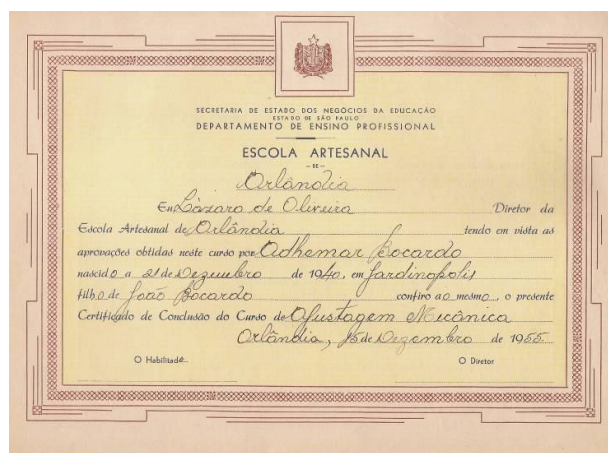 SECRETARIA DE ESTADO DOS NEGÓCIOS DA EDUCAÇÃO
ESTADO DE SÃO PAULO
DEPARTAMENTO DE ENSINO PROFISSIONAL
ESCOLA ARTESANAL
— DE —
Orlândia
Eu Lázaro de Oliveira Diretor da
Escola Artesanal de Orlândia tendo em vista as
aprovações obtidas neste curso por Adhemar Bocardo
nascido a 21 de Dezembro de 1940, em Jardinópolis
filho de João Bocardo confiro ao mesmo, o presente
Certificado de Conclusão do Curso de Ajustagem Mecânica
Orlândia, 15 de Dezembro de 1955.
O Habilitado O Diretor